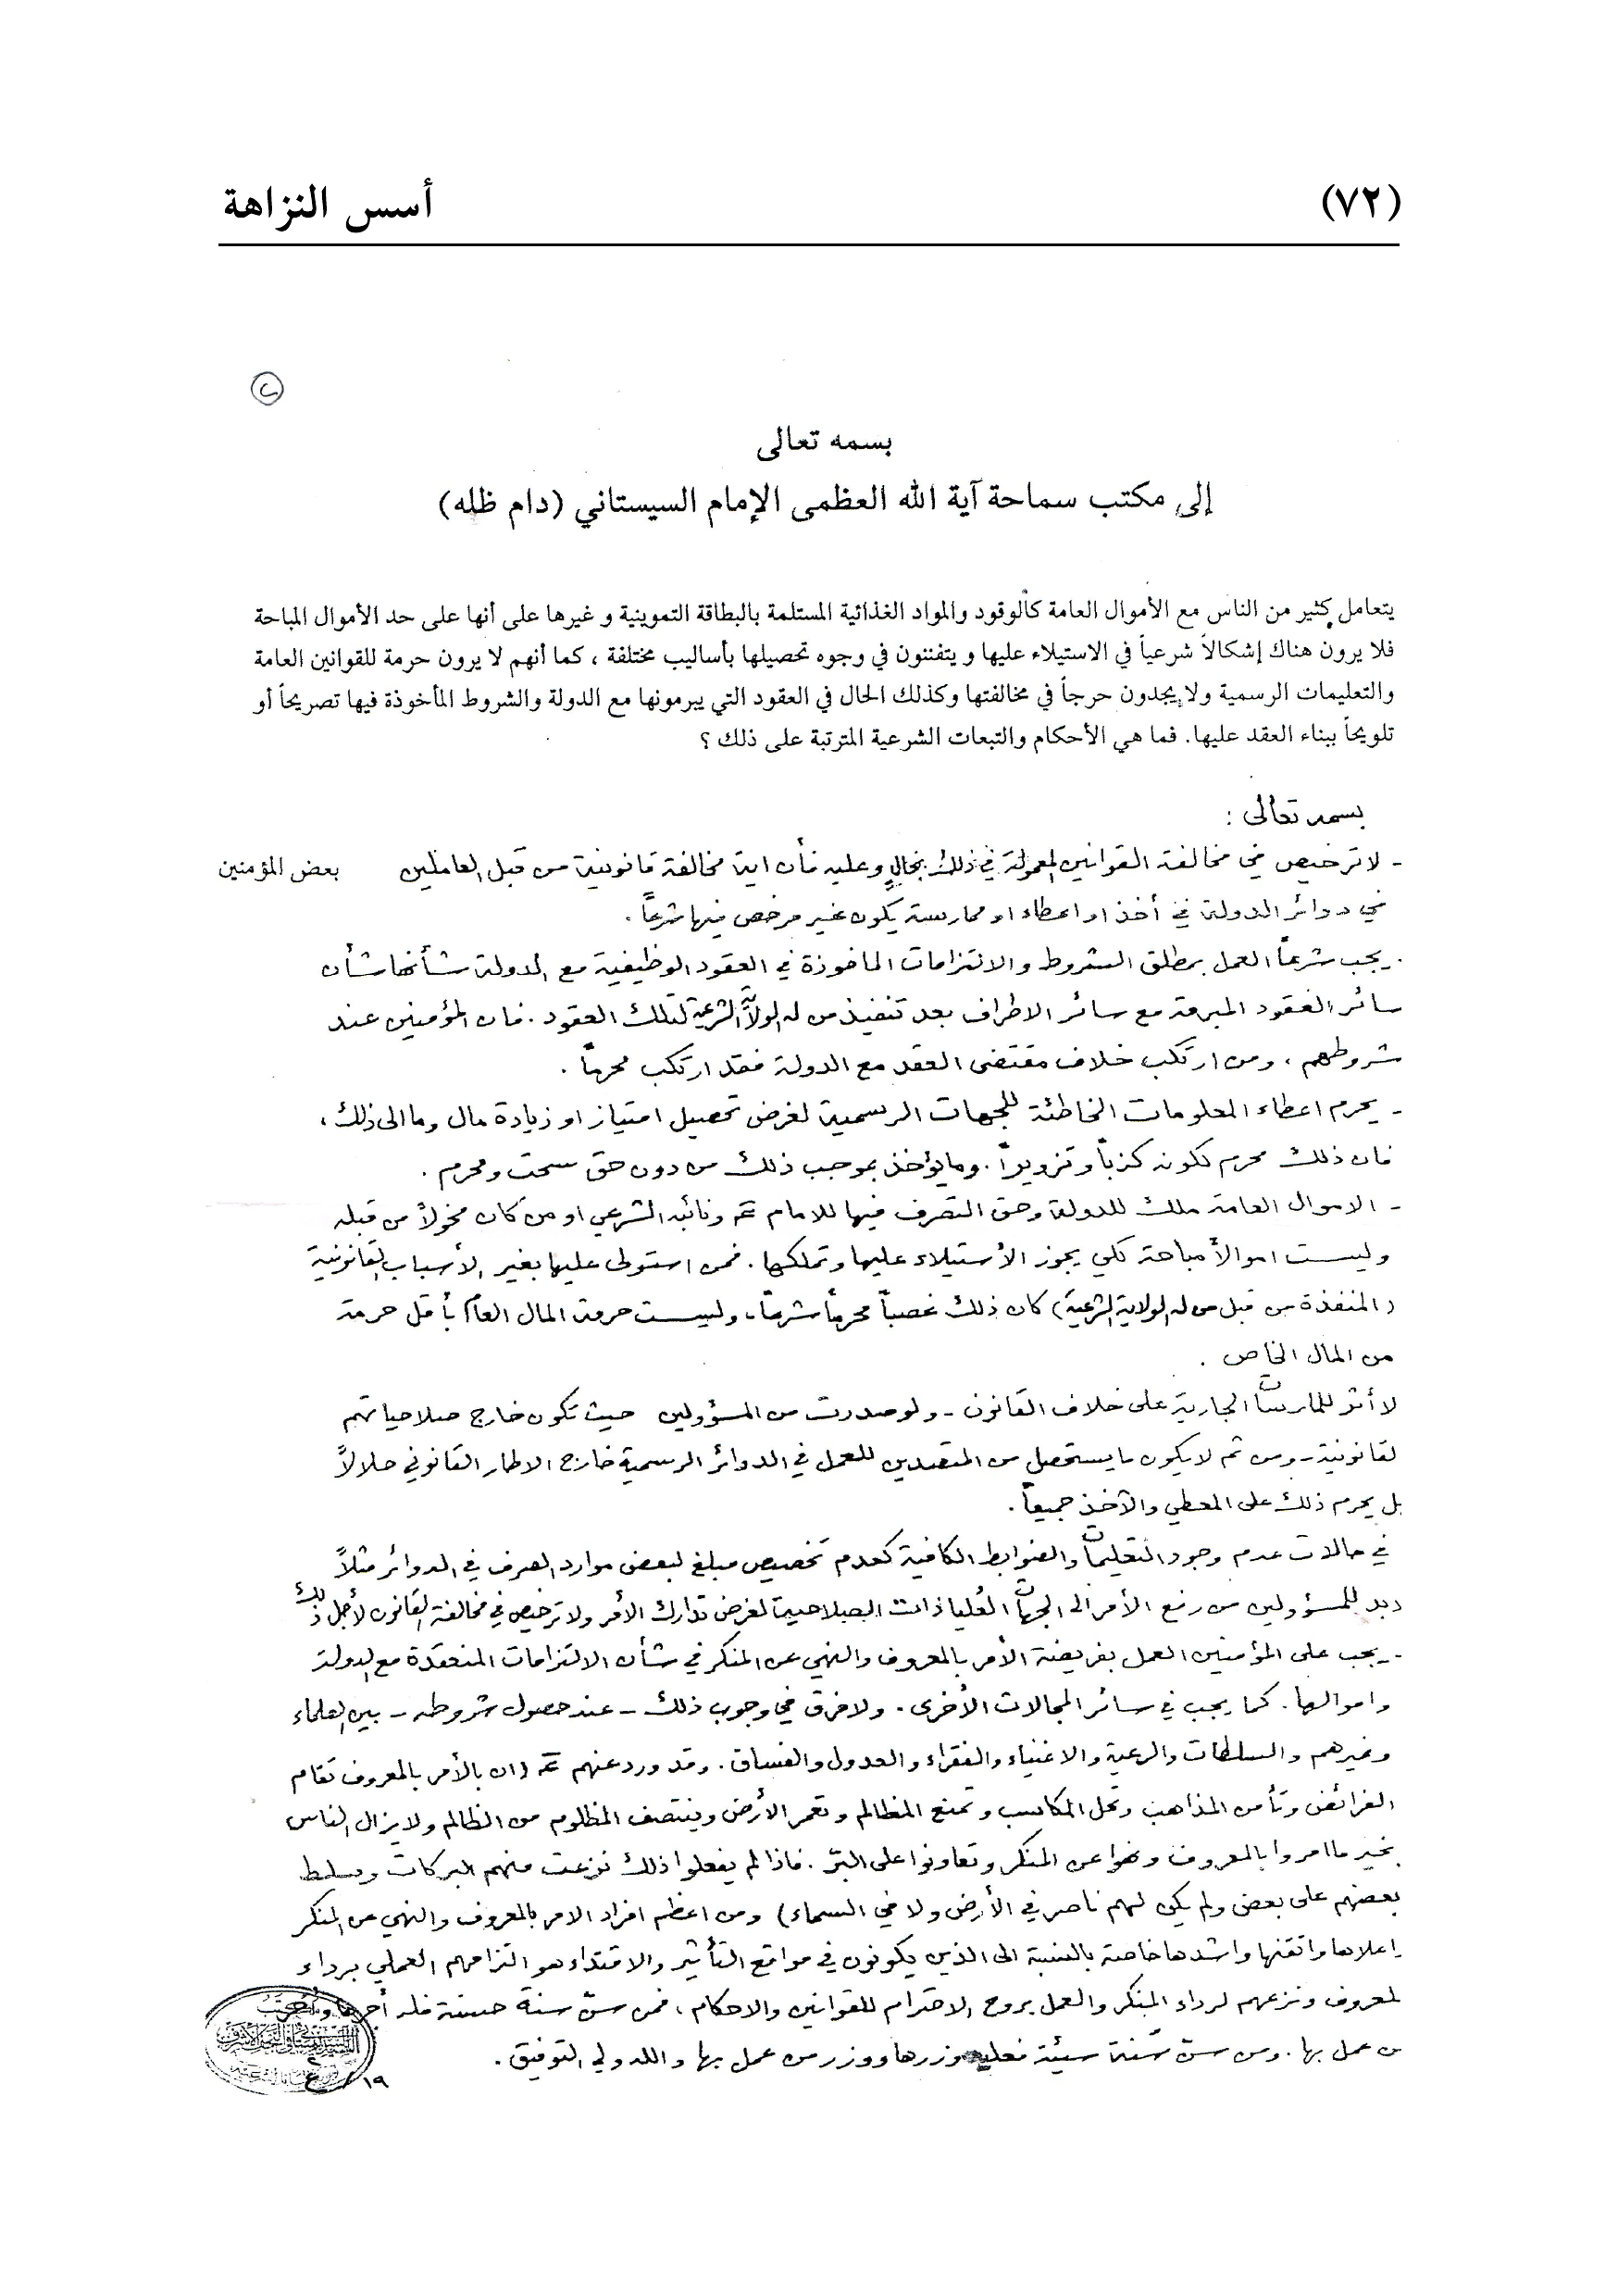 (٧٢) أسس النزاهة
بسمه تعالى
إلى مكتب سماحة آية الله العظمى الإمام السيستاني (دام ظله)
يتعامل كثير من الناس مع الأموال العامة كالوقود والمواد الغذائية المستلمة بالبطاقة التموينية و غيرها على أنها على حد الأموال المباحة
فلا يرون هناك إشكالاً شرعياً في الاستيلاء عليها و يتفننون في وجوه تحصيلها بأساليب مختلفة ، كما أنهم لا يرون حرمة للقوانين العامة
والتعليمات الرسمية ولا يجدون حرجاً في مخالفتها وكذلك الحال في العقود التي يبرمونها مع الدولة والشروط المأخوذة فيها تصريحاً أو
تلويحاً ببناء العقد عليها. فما هي الأحكام والتبعات الشرعية المترتبة على ذلك ؟
بعض المؤمنين
بسمه تعالى :
- لا ترخيص في مخالفة القوانين المعمولة في ذلك بحالٍ وعليه فأن اية مخالفة قانونية من قبل العاملين
في دوائر الدولة في أخذ او اعطاء او ممارسة يكون غير مرخص فيها شرعاً .
. يجب شرعاً العمل بمطلق الشروط والالتزامات الماخوذة في العقود الوظيفية مع الدولة شأنها شأن
سائر العقود المبرمة مع سائر الاطراف بعد تنفيذ من له الولاية الشرعية لتلك العقود . فان المؤمنين عند
شروطهم ، ومن ارتكب خلاف مقتضى العقد مع الدولة فقد ارتكب محرماً .
- يحرم اعطاء المعلومات الخاطئة للجهات الرسمية لغرض تحصيل امتياز او زيادة مال وما الى ذلك ،
فان ذلك محرم لكونه كذباً وتزويراً . وما يؤخذ بموجب ذلك من دون حق سحت ومحرم .
- الاموال العامة ملك للدولة وحق التصرف فيها للامام ع ونائبه الشرعي او من كان مخولاً من قبله
وليست اموالاً مباحة لكي يجوز الأستيلاء عليها وتملكها . فمن استولى عليها بغير الأسباب القانونية
(المنفذة من قبل من له الولاية الشرعية) كان ذلك غصباً محرماً شرعاً ، وليست حرمة المال العام بأقل حرمة
من المال الخاص .
لا أثر للممارسات الجارية على خلاف القانون - ولو صدرت من المسؤولين حيث تكون خارج صلاحياتهم
لقانونية - ومن ثم لا يكون ما يستحصل من المتصدين للعمل في الدوائر الرسمية خارج الاطار القانوني حلالاً
بل يحرم ذلك على المعطي والآخذ جميعاً .
في حالات عدم وجود التعليمات والضوابط الكافية كعدم تخصيص مبلغ لبعض موارد الصرف في الدوائر مثلاً
بد للمسؤولين من رفع الأمر الى الجهات العليا ذات الصلاحية لغرض تدارك الأمر ولا ترخيص في مخالفة القانون لأجل ذلك
- يجب على المؤمنين العمل بفريضة الأمر بالمعروف والنهي عن المنكر في شأن الالتزامات المنعقدة مع الدولة
واموالها . كما يجب في سائر المجالات الأخرى . ولا فرق في وجوب ذلك - عند حصول شروطه - بين العلماء
وغيرهم والسلطات والرعية والاغنياء والفقراء والعدول والفساق . وقد ورد عنهم ع (ان بالأمر بالمعروف تقام
الفرائض وتأمن المذاهب وتحل المكاسب وتمنع المظالم وتعمر الأرض وينتصف المظلوم من الظالم ولا يزال الناس
بخير ما امروا بالمعروف ونهوا عن المنكر وتعاونوا على البرّ . فاذا لم يفعلوا ذلك نزعت منهم البركات وسلط
بعضهم على بعض ولم يكن لهم ناصر في الأرض ولا في السماء) ومن اعظم افراد الامر بالمعروف والنهي عن المنكر
اعلاها واتقنها واشدها خاصة بالنسبة الى الذين يكونون في مواقع التأثير والاقتداء هو التزامهم العملي برداء
لمعروف ونزعهم لرداء المنكر والعمل بروح الاحترام للقوانين والاحكام ، فمن سنّ سنة حسنة فله أجرها وأجر
من عمل بها . ومن سنّ سنّة سيئة فعليه وزرها ووزر من عمل بها والله ولي التوفيق .